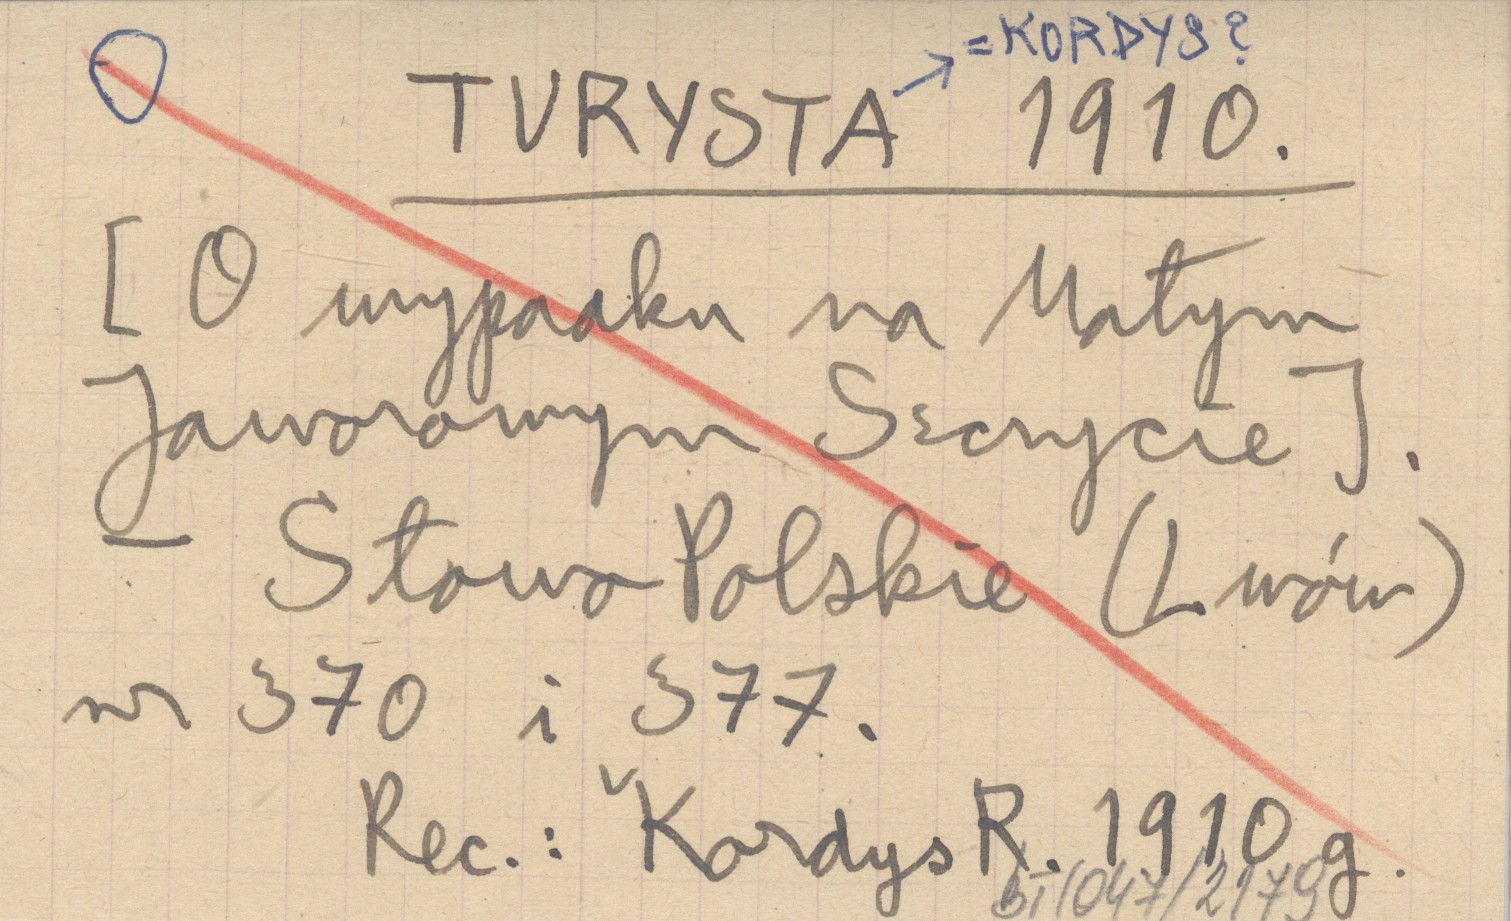 =KORDYS?
TURYSTA 1910.
[O wypadku na Małym
Jaworowym Szczycie].
— Słowo Polskie (Lwów)
nr 370 i 377.
Rec.: Kordys R. 1910 g.
BT/047/2179